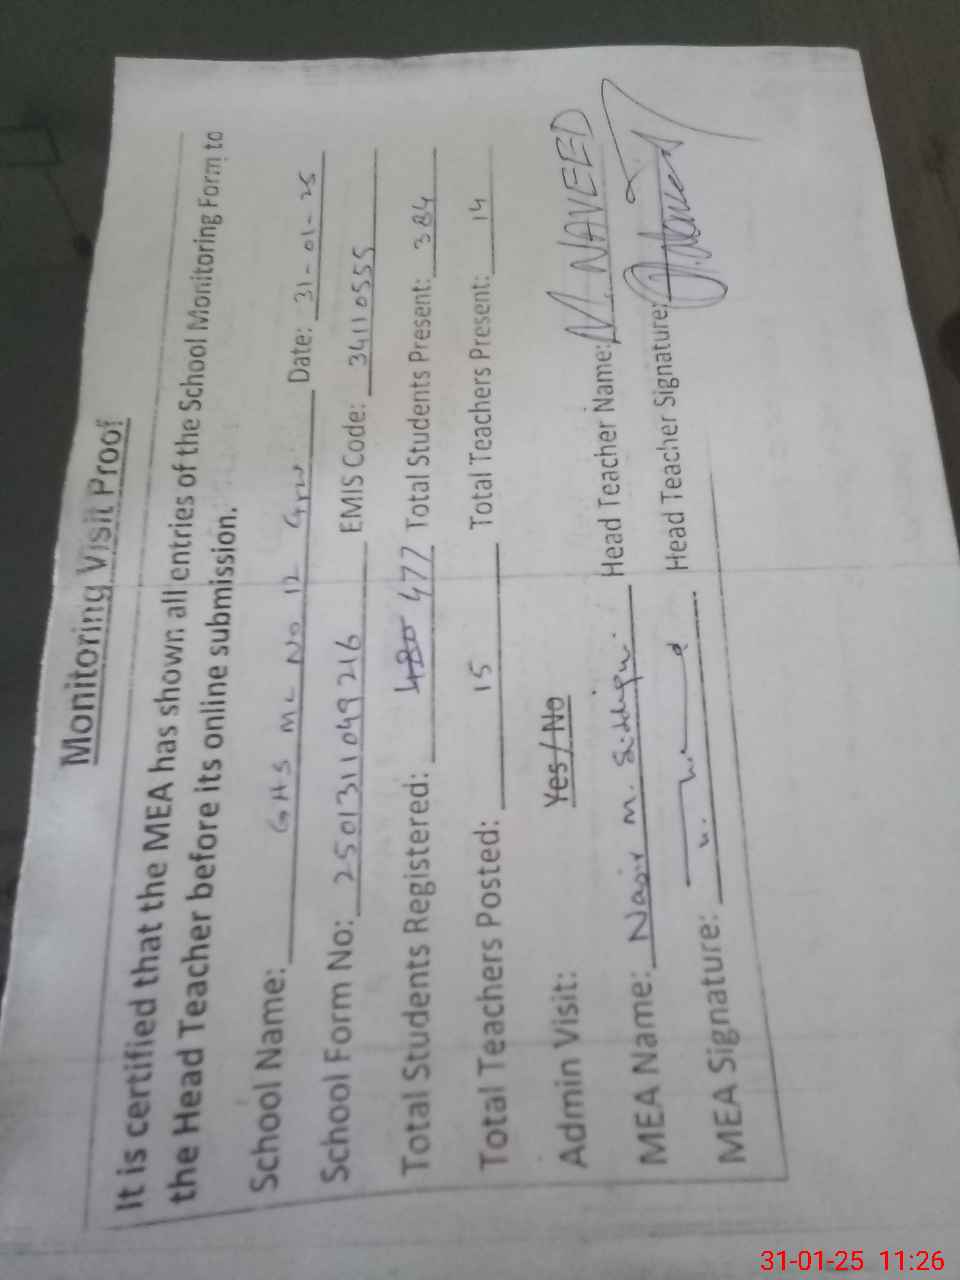 Monitoring Visit Proof
It is certified that the MEA has shown all entries of the School Monitoring Form to
the Head Teacher before its online submission.
School Name: GHS MC No 12 Grw Date: 31-01-25
School Form No: 2501311049216 EMIS Code: 34110555
Total Students Registered: 480 477 Total Students Present: 384
Total Teachers Posted: 15 Total Teachers Present: 14
Admin Visit: Yes/No
MEA Name: Nasir M. Siddiqui Head Teacher Name: M. NAVEED
MEA Signature: Head Teacher Signature: M. Naveed
31-01-25 11:26